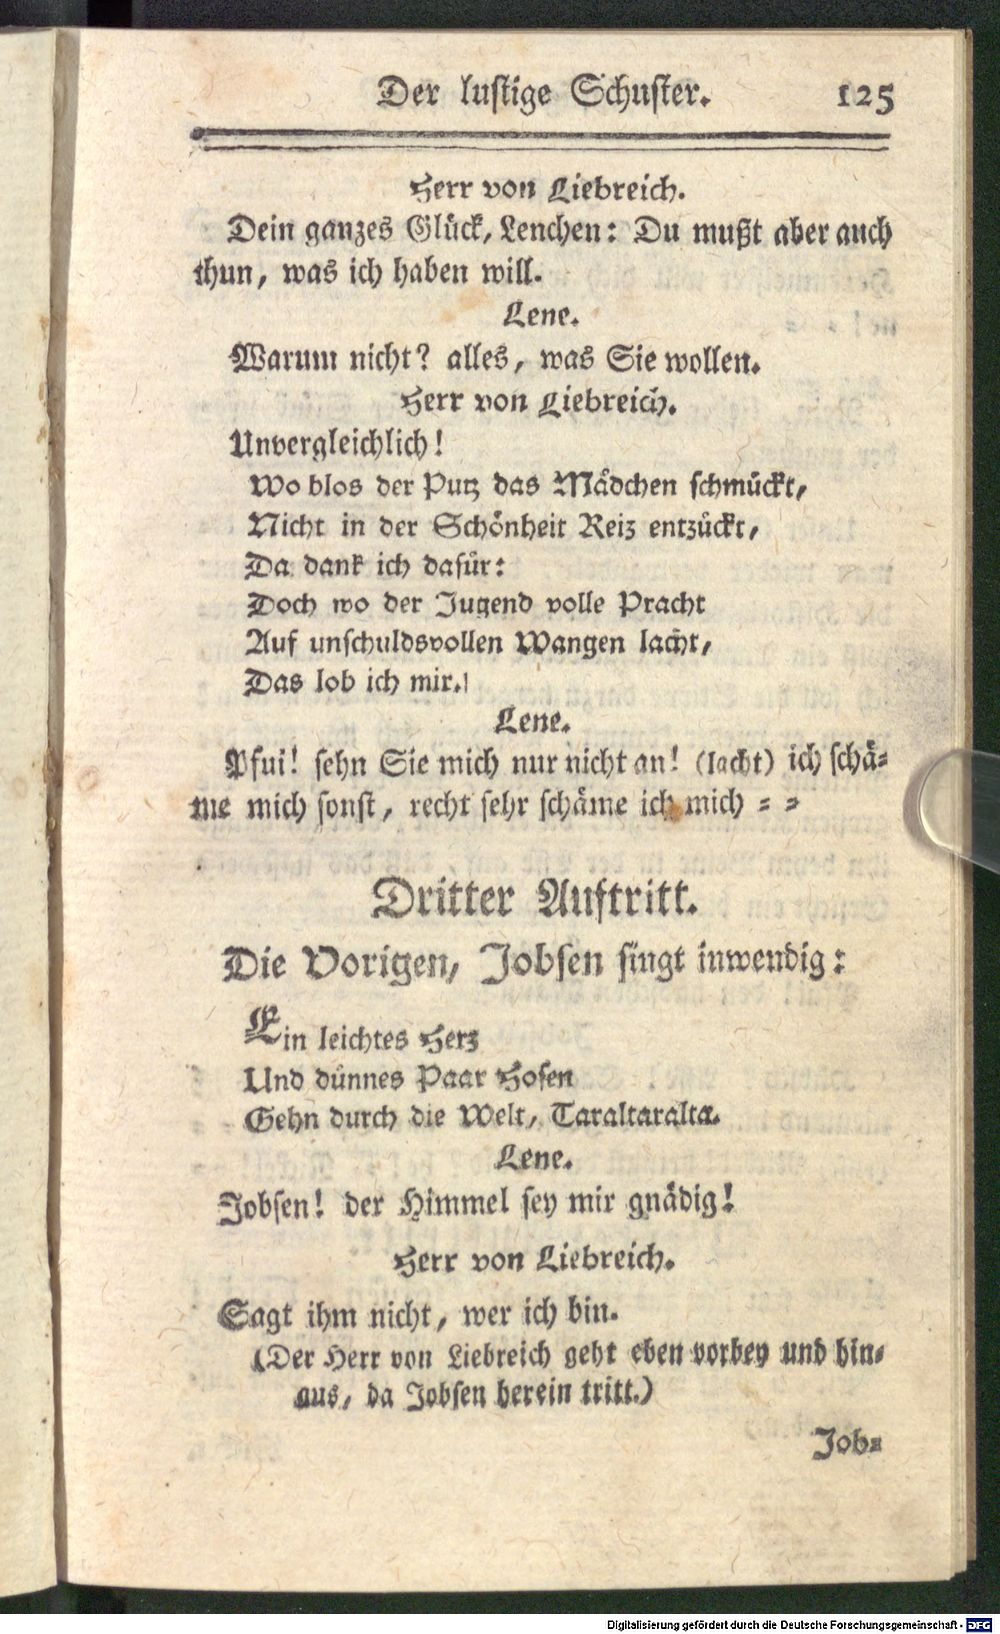 Der lustige Schuster. 125
Herr von Liebreich.
Dein ganzes Glück, Lenchen: Du mußt aber auch
thun, was ich haben will.
Lene.
Warum nicht? alles, was Sie wollen.
Herr von Liebreich.
Unvergleichlich!
Wo blos der Putz das Mädchen schmückt,
Nicht in der Schönheit Reiz entzückt,
Da dank ich dafür:
Doch wo der Jugend volle Pracht
Auf unschuldsvollen Wangen lacht,
Das lob ich mir.
Lene.
Pfui! sehn Sie mich nur nicht an! (lacht) ich schä-
me mich sonst, recht sehr schäme ich mich = =
Dritter Auftritt.
Die Vorigen, Jobsen singt inwendig:
Ein leichtes Herz
Und dünnes Paar Hosen
Gehn durch die Welt, Taraltaralta.
Lene.
Jobsen! der Himmel sey mir gnädig!
Herr von Liebreich.
Sagt ihm nicht, wer ich bin.
(Der Herr von Liebreich geht eben vorbey und hin-
aus, da Jobsen herein tritt.)
Job-
Digitalisierung gefördert durch die Deutsche Forschungsgemeinschaft - DFG